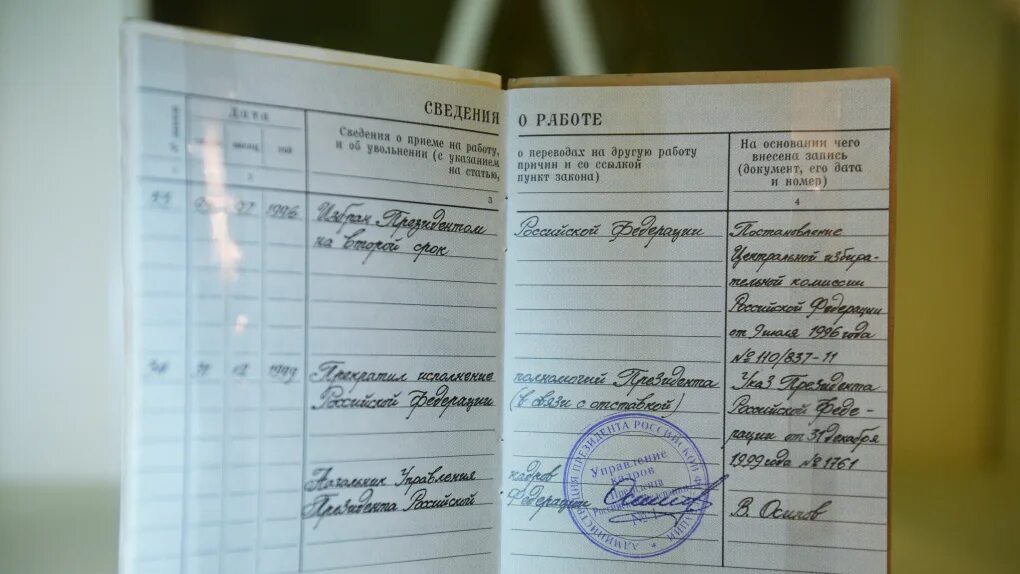 СВЕДЕНИЯ О РАБОТЕ
Дата
Сведения о приеме на работу, о переводах на другую работу
и об увольнении (с указанием причин и со ссылкой
на статью, пункт закона)
На основании чего
внесена запись
(документ, его дата
и номер)
месяц
3
4
1996 Избран Президентом Российской Федерации
на второй срок
Постановление
Центральной избира-
тельной комиссии
Российской Федерации
от 9 июля 1996 года
№ 110/837-11
1999 Прекратил исполнение полномочий Президента
Российской Федерации (в связи с отставкой)
Указ Президента
Российской Феде-
рации от 31 декабря
1999 года № 1761
Начальник Управления кадров
Президента Российской Федерации
В. Осипов
АДМИНИСТРАЦИЯ ПРЕЗИДЕНТА РОССИЙСКОЙ ФЕДЕРАЦИИ
Управление
кадров
Президента